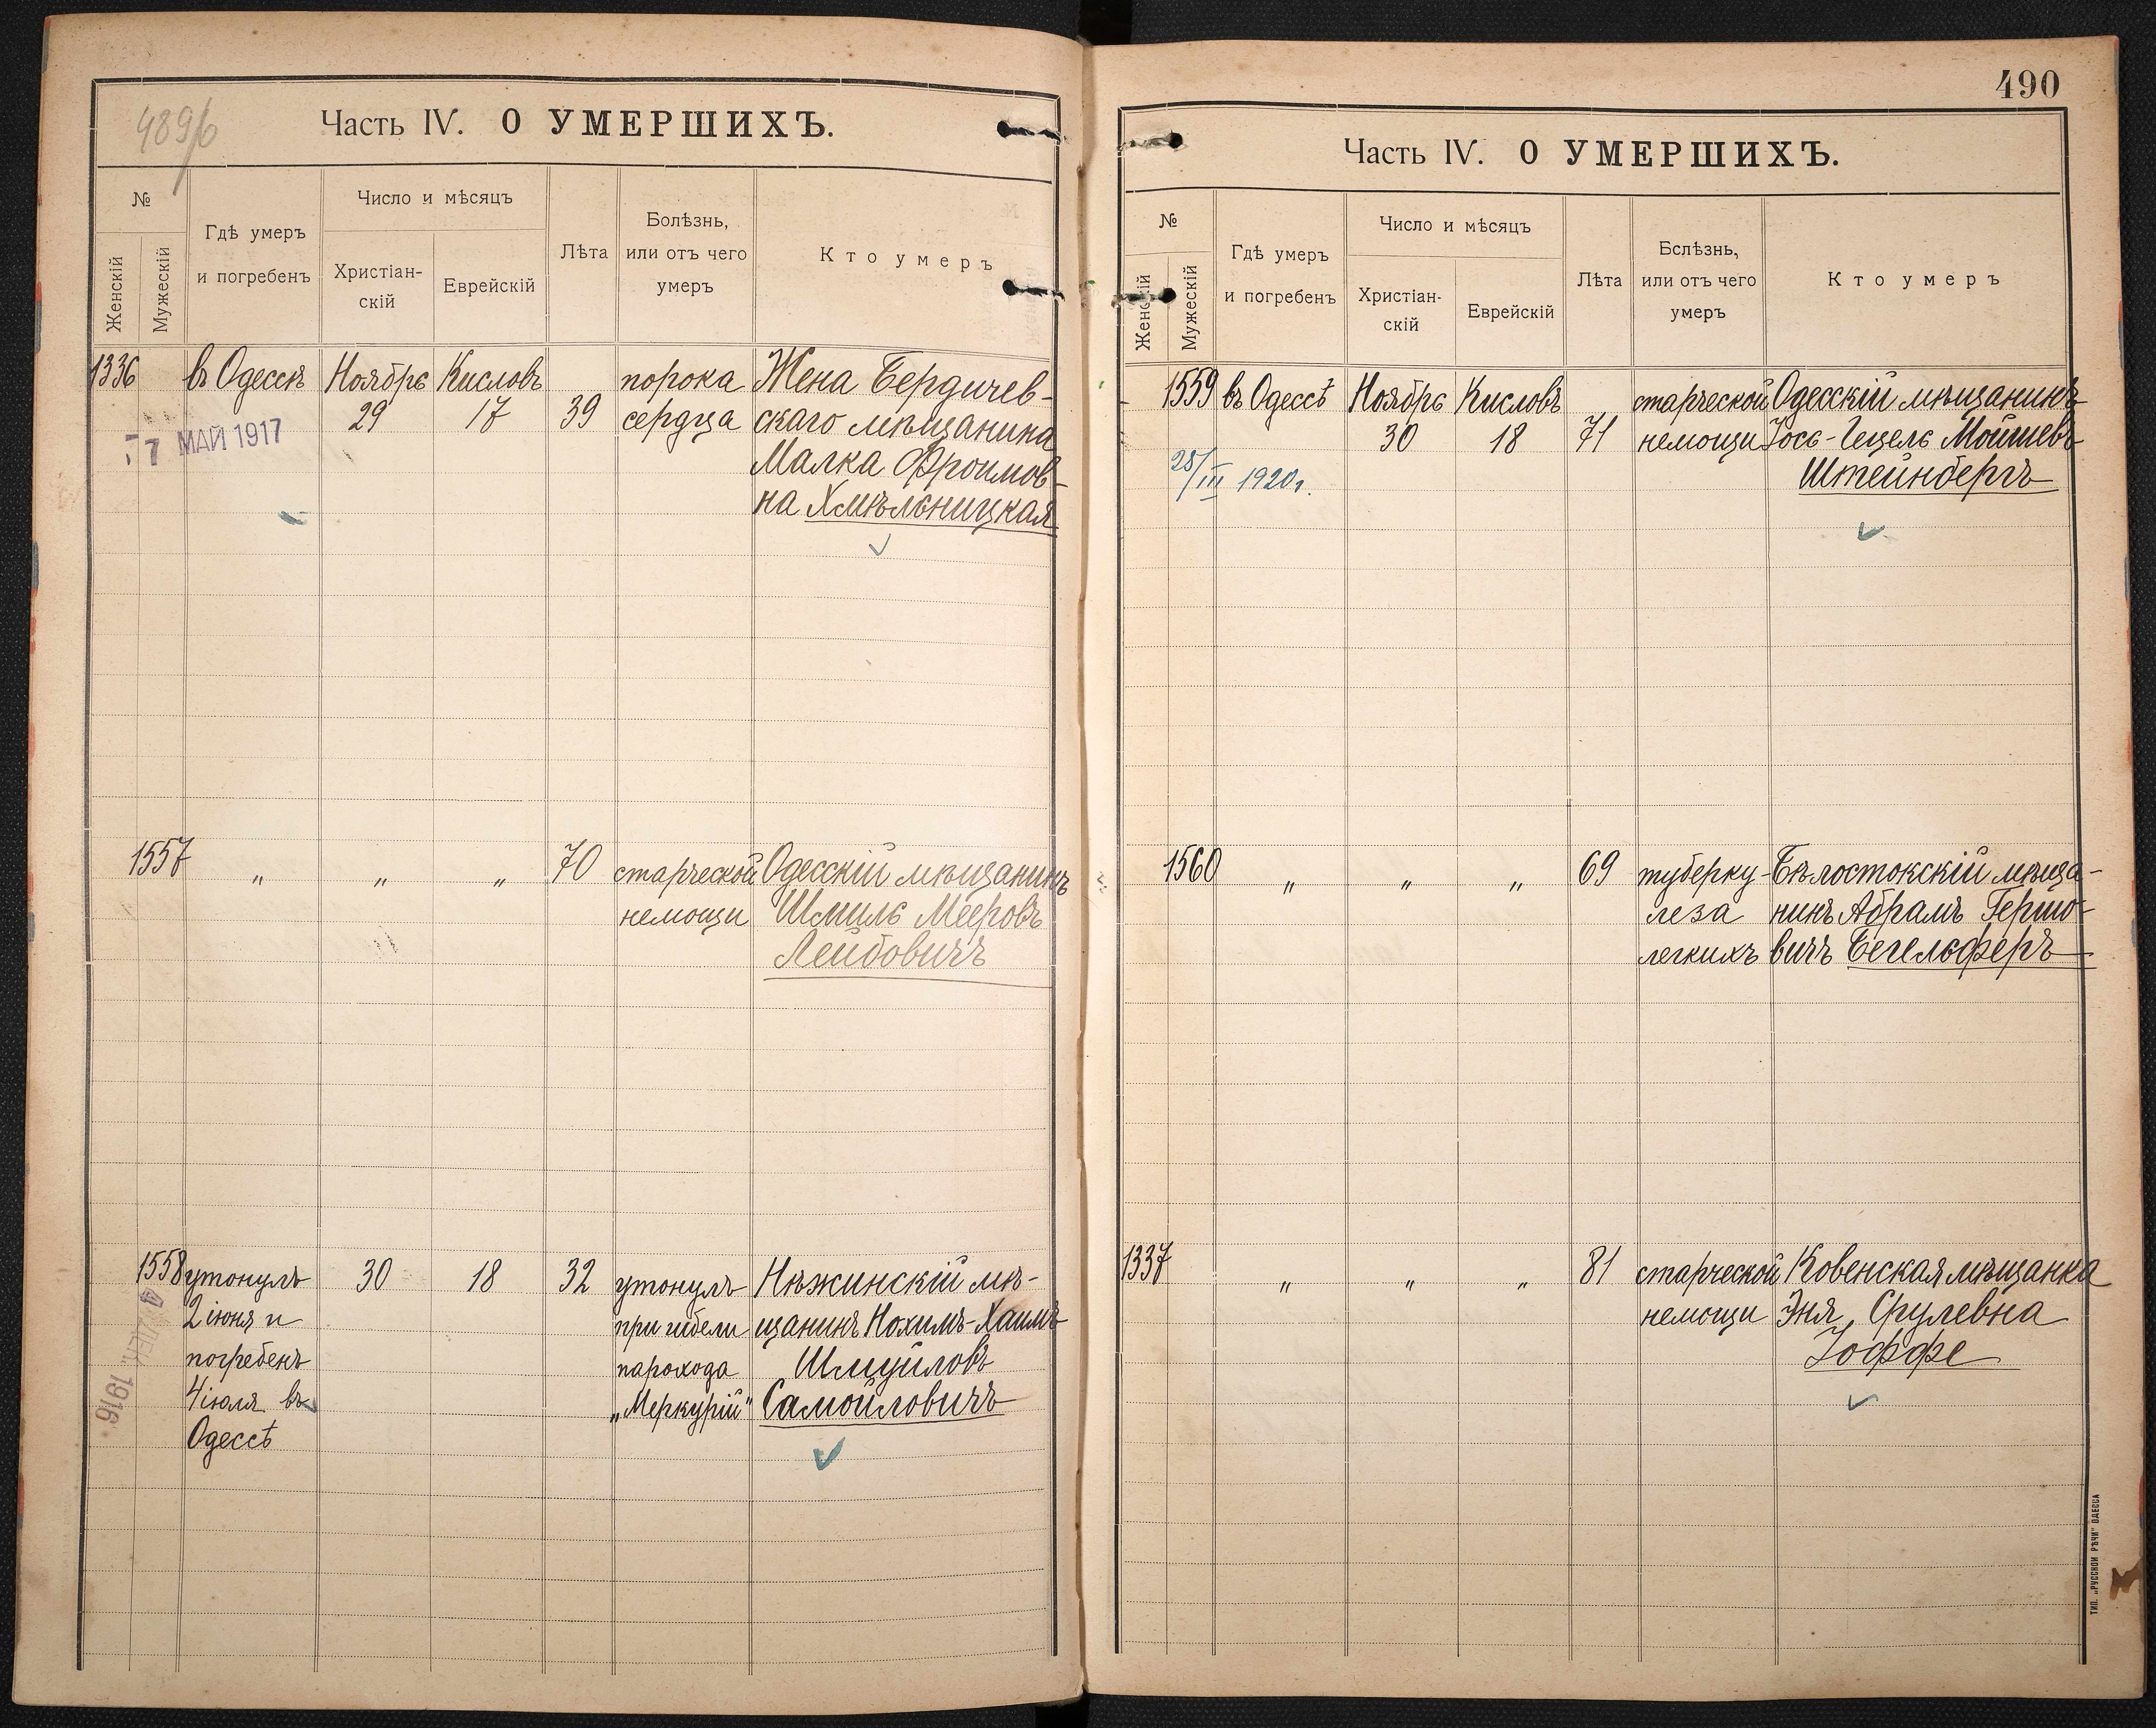 489/б
Часть IV. О УМЕРШИХЪ.
№
Женскій
Мужескій
Гдѣ умеръ
и погребенъ
Число и мѣсяцъ
Христіан-
скій
Еврейскій
Лѣта
Болѣзнь,
или отъ чего
умеръ
Кто умеръ
1336 въ Одессѣ Ноябрь Кисловъ порока Жена Бердичев-
29 17 39 сердца скаго мѣщанина
7 МАЙ 1917
Малка Фроимов-
на Хмѣльницкая
1557 " " " 70 старческой Одесскій мѣщанинъ
немощи Шмиль Мееровъ
Лейбовичъ
1558 утонулъ 30 18 32 утонулъ Нѣжинскій мѣ-
2 іюня и при гибели щанинъ Нохимъ-Хаимъ
погребенъ парохода Шмуйловъ
4 іюля въ „Меркурій" Самойловичъ
Одессѣ
4 ДЕК. 1916
490
Часть IV. О УМЕРШИХЪ.
№
Женскій
Мужескій
Гдѣ умеръ
и погребенъ
Число и мѣсяцъ
Христіан-
скій
Еврейскій
Лѣта
Бслѣзнь,
или отъ чего
умеръ
Кто умеръ
1559 въ Одессѣ Ноябрь Кисловъ старческой Одесскій мѣщанинъ
30 18 71 немощи Іось-Гецель Мошиевъ
28/III 1920г. Штейнбергъ
1560 " " " 69 туберку- Бѣлостокскій мѣща-
леза нинъ Абрамъ Гершо-
легкихъ вичъ Бегельферъ
1337 " " " 81 старческой Ковенская мѣщанка
немощи Эня Срулевна
Іоффе
ТИП. „РУССКОЙ РѢЧИ" ОДЕССА